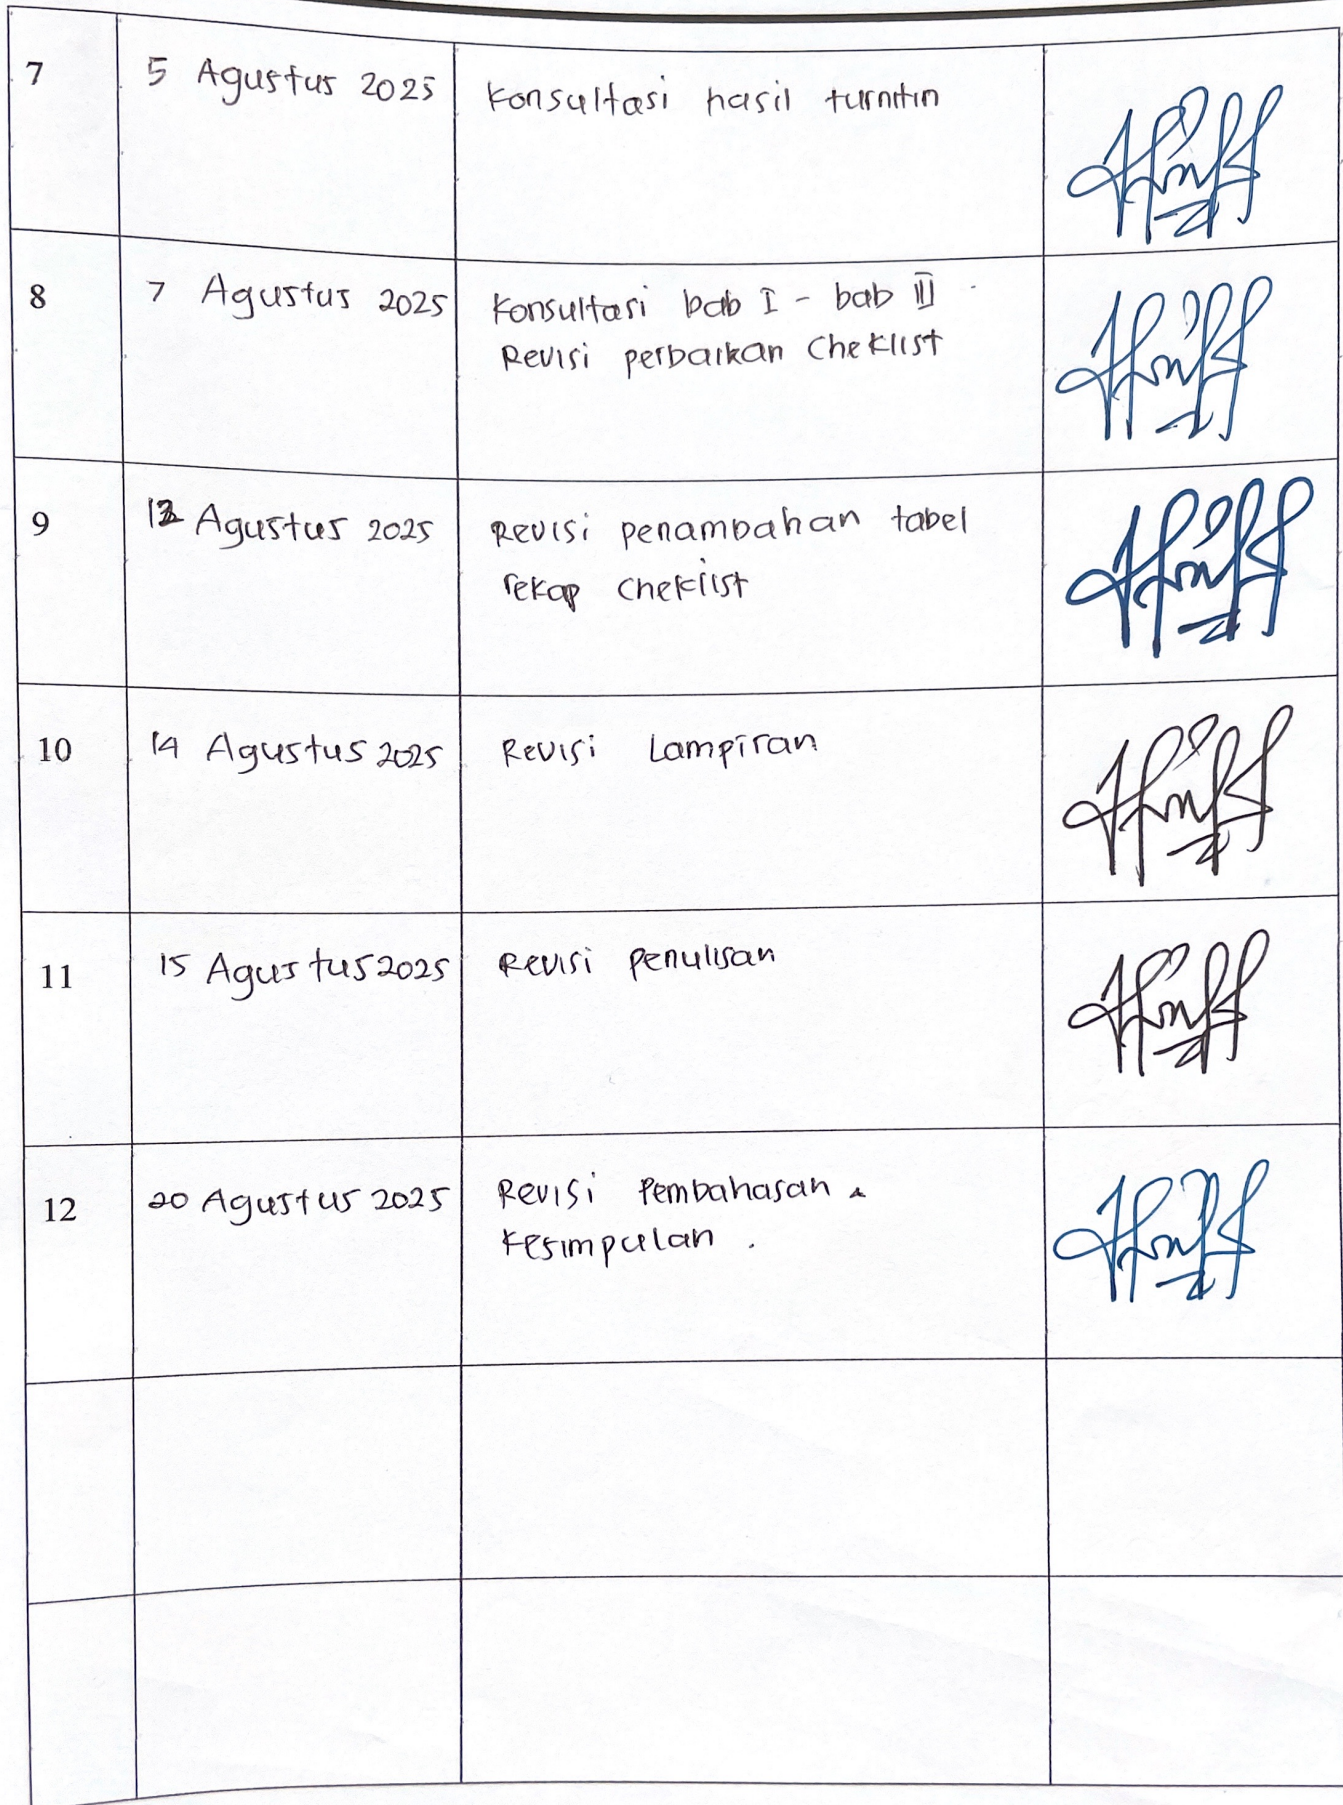 7
5 Agustus 2025
Konsultasi hasil turnitin
8
7 Agustus 2025
Konsultasi bab I - bab III
Revisi perbaikan Cheklist
9
Agustus 2025
Revisi penambahan tabel
rekap cheklist
10
14 Agustus 2025
Revisi Lampiran
11
15 Agustus 2025
Revisi Penulisan
12
20 Agustus 2025
Revisi Pembahasan &
Kesimpulan .